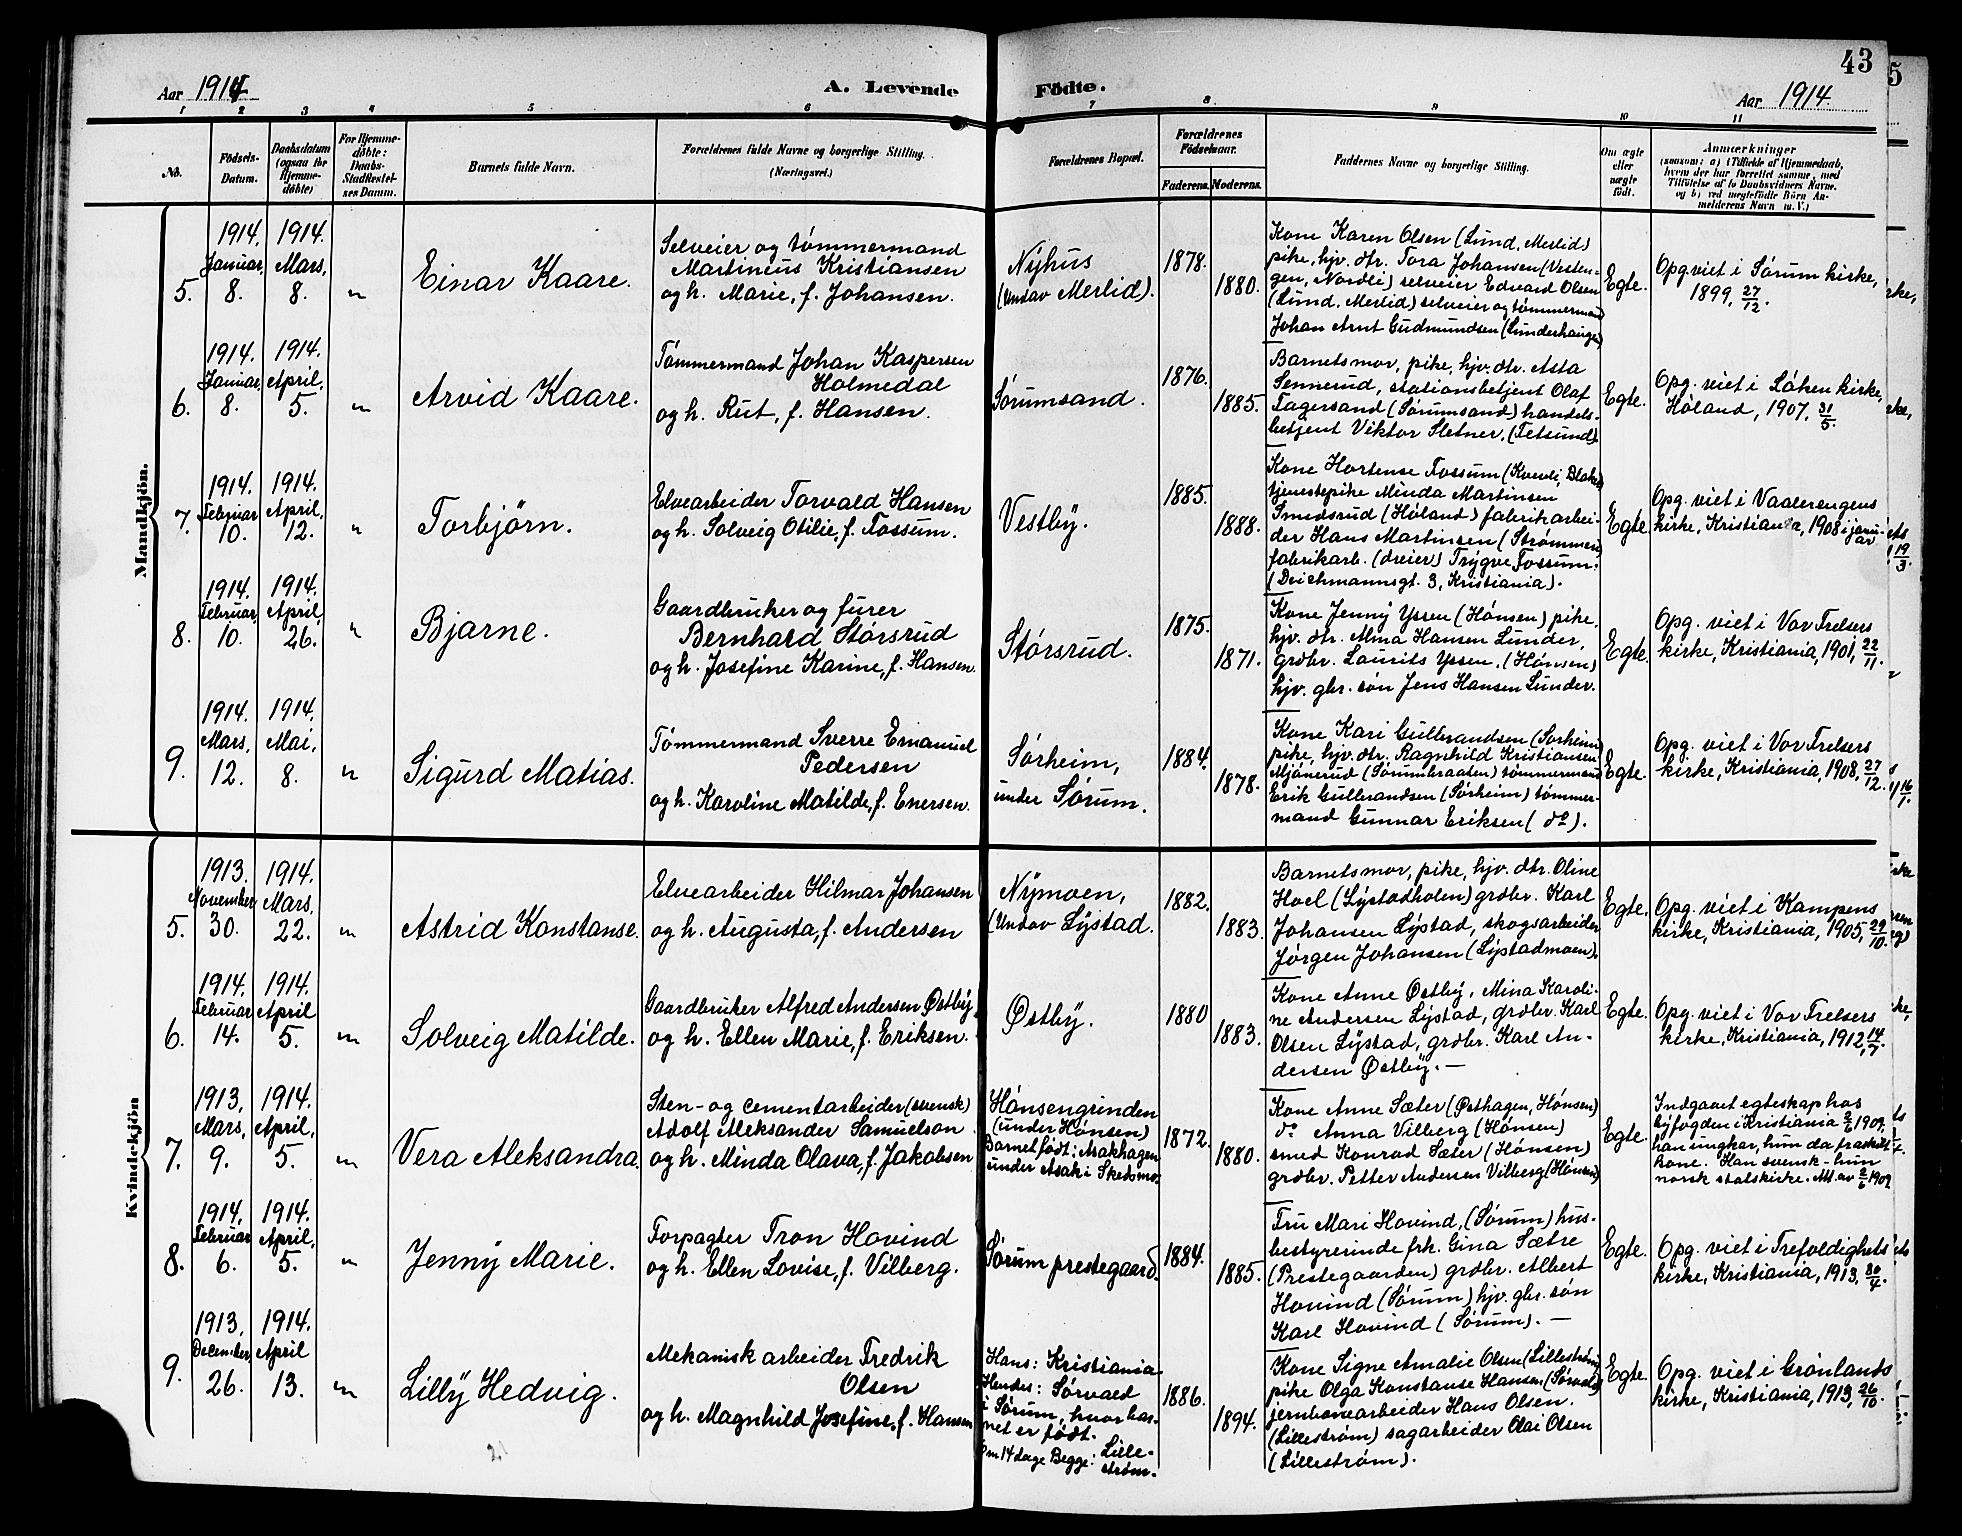 43
Aar 1914
A. Levende
Fødte.
Aar 1914.
1 2 3 4 5 6 7 8 9 10 11
No.
Fødsels-
Datum.
Daabsdatum
(ogsaa for
Hjemme-
døbte)
For Hjemme-
døbte:
Daabs-
Stadfæstel-
ses Datum.
Barnets fulde Navn.
Forældrenes fulde Navne og borgerlige Stilling.
(Næringsvei.)
Forældrenes Bopæl.
Forældrenes
Fødselsaar.
Faderens. Moderens.
Faddernes Navne og borgerlige Stilling.
Om ægte
eller
uægte
født.
Anmærkninger
(saasom: a) i Tilfælde af Hjemmedaab,
hvem der har forrettet samme, med
Tilføielse af to Daabsvidners Navne.
og b) ved uægtefødte Börn An-
melderens Navn m. V.)
Mandkjön.
5.
1914.
Januar,
8.
1914.
Mars,
8.
"
Einar Kaare.
Selveier og tømmermand
Martinius Kristiansen
og h. Marie, f. Johansen.
Nyhus
(Undav Merlid).
1878.
1880.
Kone Karen Olsen (Lund, Merlid)
pike, hjv. dtr. Tora Johansen (Vesten-
gen, Nordli) selveier Edvard Olsen
(Lund, Merlid) selveier og tømmermand
Johan Arnt Gudmundsen (Lunderhaugen)
Egte.
Opg. viet i Sørum kirke,
1899, 27/12.
6.
1914.
Januar,
8.
1914.
April,
5.
"
Arvid Kaare.
Tømmermand Johan Kaspersen
Holmedal
og h. Rut, f. Hansen.
Sørumsand.
1876.
1885.
Barnets mor, pike, hjv. dtr. Asta
Sennerud, stationsbetjent Olaf
Fagersand (Sørumsand) handels-
betjent Viktor Sletner, (Fetsund).
Egte.
Opg. viet i Løken kirke,
Høland, 1907, 31/5.
7.
1914.
Februar
10.
1914.
April,
12.
"
Torbjørn.
Elvearbeider Torvald Hansen
og h. Solveig Otilie, f. Fossum.
Vestby.
1885.
1888.
Kone Hortense Fossum (Kverli, Blaker)
tjenestepike Minda Martinsen
Smedsrud (Høland) fabrikarbei-
der Hans Martinsen (Strømmen)
fabrikarb. (dreier) Trygve Fossum.
(Deichmannsgt. 3, Kristiania).
Egte.
Opg. viet i Vaalerengens
kirke, Kristiania, 1908 i janu-
ar
8.
1914.
Februar
10.
1914.
April,
26.
"
Bjarne.
Gaardbruker og furer
Bernhard Størsrud
og h. Josefine Karine, f. Hansen.
Størsrud.
1875.
1871.
Kone Jenny Yssen (Hønsen) pike,
hjv. dtr. Alma Hansen Lunder,
grdbr. Laurits Yssen, (Hønsen)
hjv. gbr. søn Jens Hansen Lunder.
Egte.
Opg. viet i Vor Frelsers
kirke, Kristiania, 1901, 22/11.
9.
1914.
Mars,
12.
1914.
Mai,
8.
"
Sigurd Matias.
Tømmermand Sverre Emanuel
Pedersen
og h. Karoline Matilde, f. Enersen.
Sørheim,
under Sørum.
1884.
1878.
Kone Kari Gulbrandsen (Sørheim)
pike, hjv. dtr. Ragnhild Kristiansen
Mjønerud (Sømmbraaten) tømmermand
Erik Gulbrandsen (Sørheim) tømmer-
mand Gunnar Eriksen (do).
Egte.
Opg. viet i Vor Frelsers
kirke, Kristiania, 1908, 27/12.
Kvindekjön
5.
1913.
November
30.
1914.
Mars,
22.
"
Astrid Konstanse.
Elvearbeider Hilmar Johansen
og h. Augusta, f. Andersen
Nymoen,
(Undav Lystad.
1882.
1883.
Barnets mor, pike, hjv. dtr. Oline
Hoel (Lystadholen) grdbr. Karl
Johansen Lystad, skogsarbeider
Jørgen Johansen (Lystadmoen).
Egte.
Opg. viet i Kampens
kirke, Kristiania, 1905, 29/10.
6.
1914.
Februar
14.
1914.
April
5.
"
Solveig Matilde.
Gaardbruker Alfred Andersen Østby
og h. Ellen Marie, f. Eriksen.
Østby.
1880
1883.
Kone Anne Østby, Mina Karoli-
ne Andersen Lystad, grdbr. Karl
Olsen Lystad, grdbr. Karl An-
dersen Østby. —
Egte.
Opg. viet i Vor Frelsers
kirke, Kristiania, 1912, 14/7.
7.
1913,
Mars,
9.
1914.
April,
5.
"
Vera Aleksandra
Sten- og cementarbeider (svensk)
Adolf Aleksander Samuelson
og h. Minda Olava, f. Jakobsen
Hønsengrinden
(under Hønsen)
Barnet født: Asakhagen
under Asak i Skedsmo.
1872.
1880.
Kone Anne Sæter (Østhagen, Hønsen)
do Anna Vilberg (Hønsen)
smed Konrad Sæter (Hønsen)
grdbr. Petter Andersen Vilberg (Hønsen)
Egte.
Indgaaet egteskap hos
byfogden i Kristiania 2/6 1909,
han ungkar, hun da fraskilt
kone. Han svensk - hun
norsk statskirke. Att. av 2/6 1909
8.
1914,
Februar
6.
1914.
April,
5.
"
Jenny Marie.
Forpagter Tron Hovind
og h. Ellen Lovise, f. Vilberg.
Sørum prestegaard.
1884.
1885.
Fru Mari Hovind, (Sørum) hus-
bestyrerinde frk. Gina Sætre
(Prestegaarden) grdbr. Albert
Hovind (Sørum) hjv. gbr. søn
Karl Hovind (Sørum). —
Egte.
Opg. viet i Trefoldighets
kirke, Kristiania, 1913, 30/4.
9.
1913,
December,
26.
1914.
April
13.
"
Lilly Hedvig.
Mekanisk arbeider Fredrik
Olsen
og h. Magnhild Josefine, f. Hansen
Hans: Kristiania
Hendes: Sørvald
i Sørum, hvor bar-
net er født.
Om 14 dage Begge: Lille-
strøm.
1886.
1894.
Kone Signe Amalie Olsen (Lillestrøm)
pike Olga Konstanse Hansen (Sørvald)
jernbanearbeider Hans Olsen.
(Lillestrøm) sagarbeider Olai Olsen
(Lillestrøm).
Egte.
Opg. viet i Grønlands
kirke, Kristiania, 1913, 26/10.